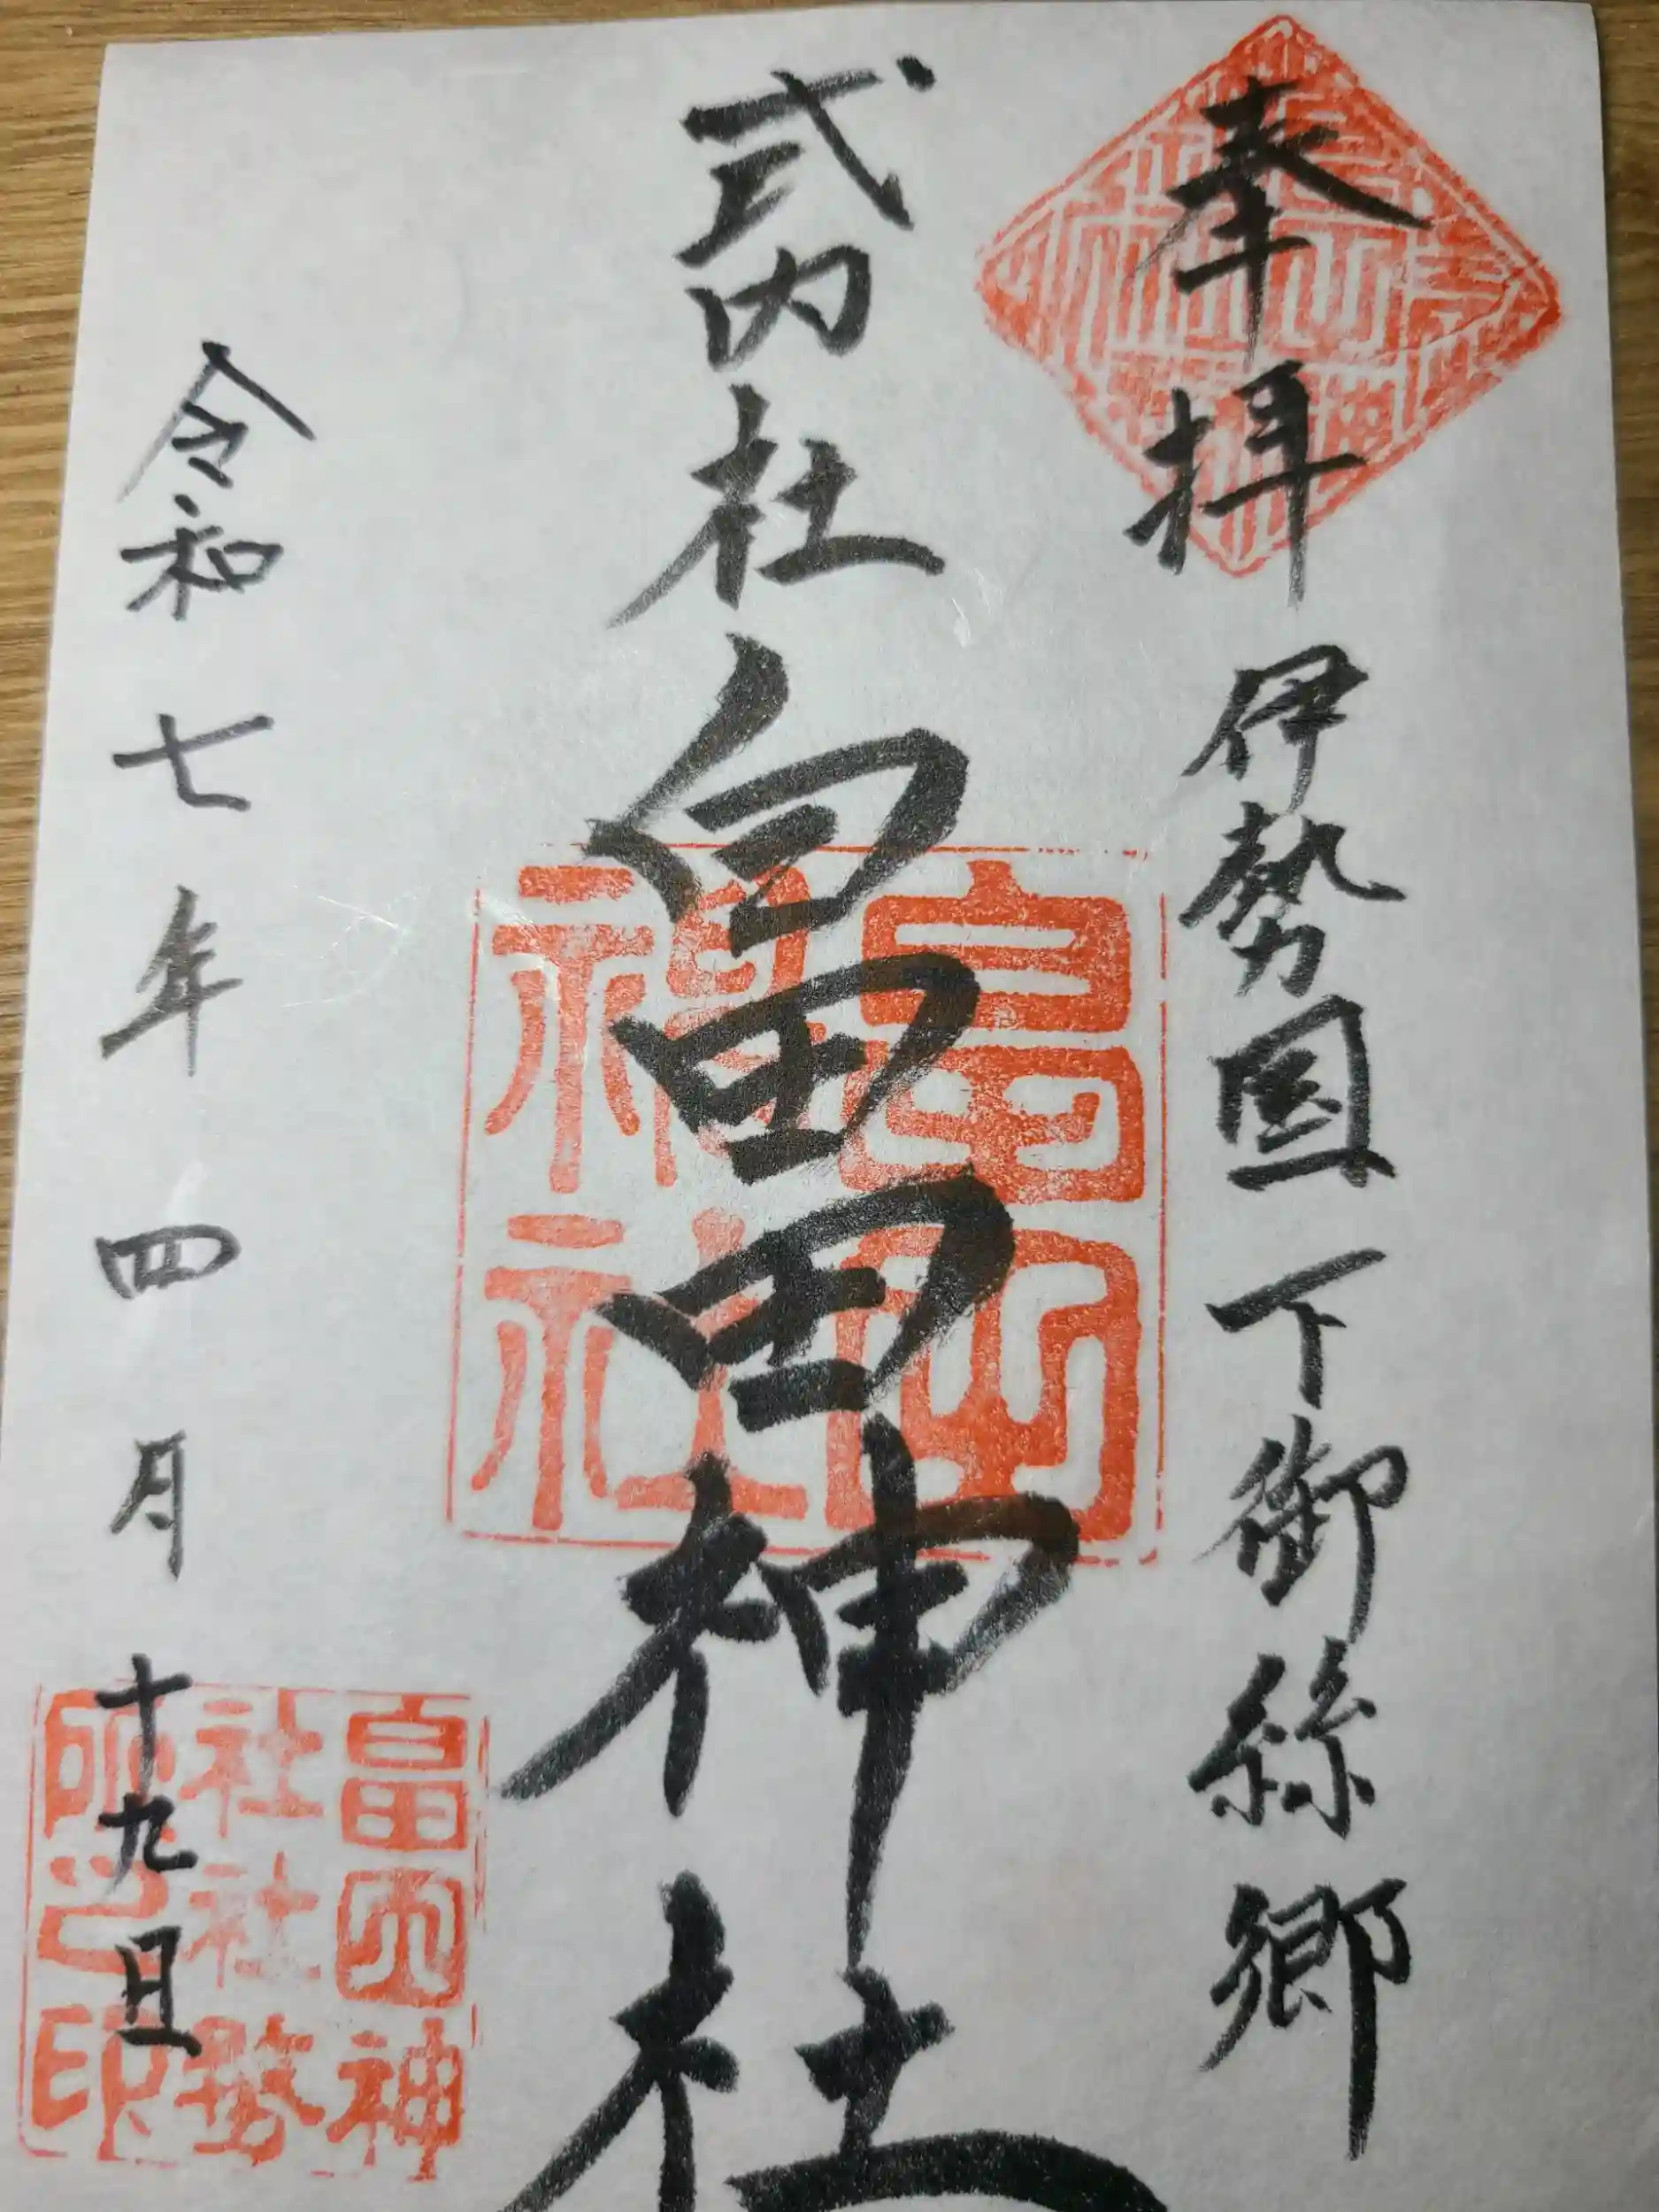 奉拝 伊勢国 下御絲郷
式内社 畠田神社
令和七年四月十九日
畠田神社
畠田神社社務所之印